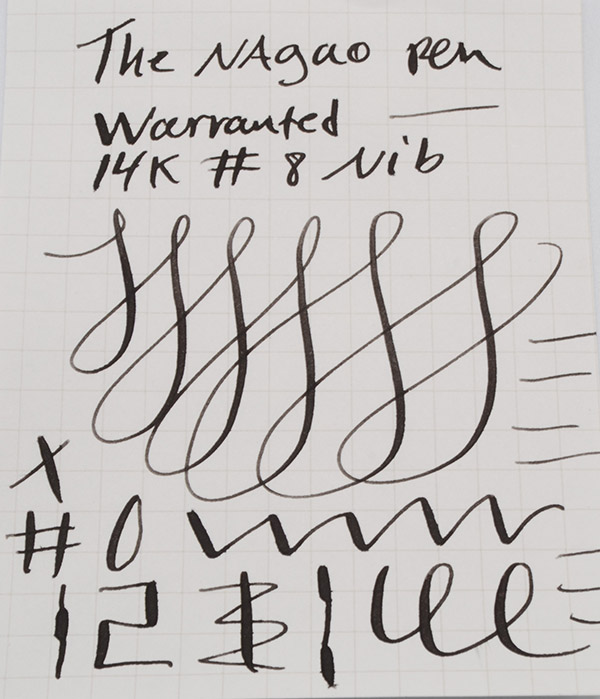 The NAgao pen
Warranted
14K # 8 Nib
X
# 0
1 2 $ 1 lll